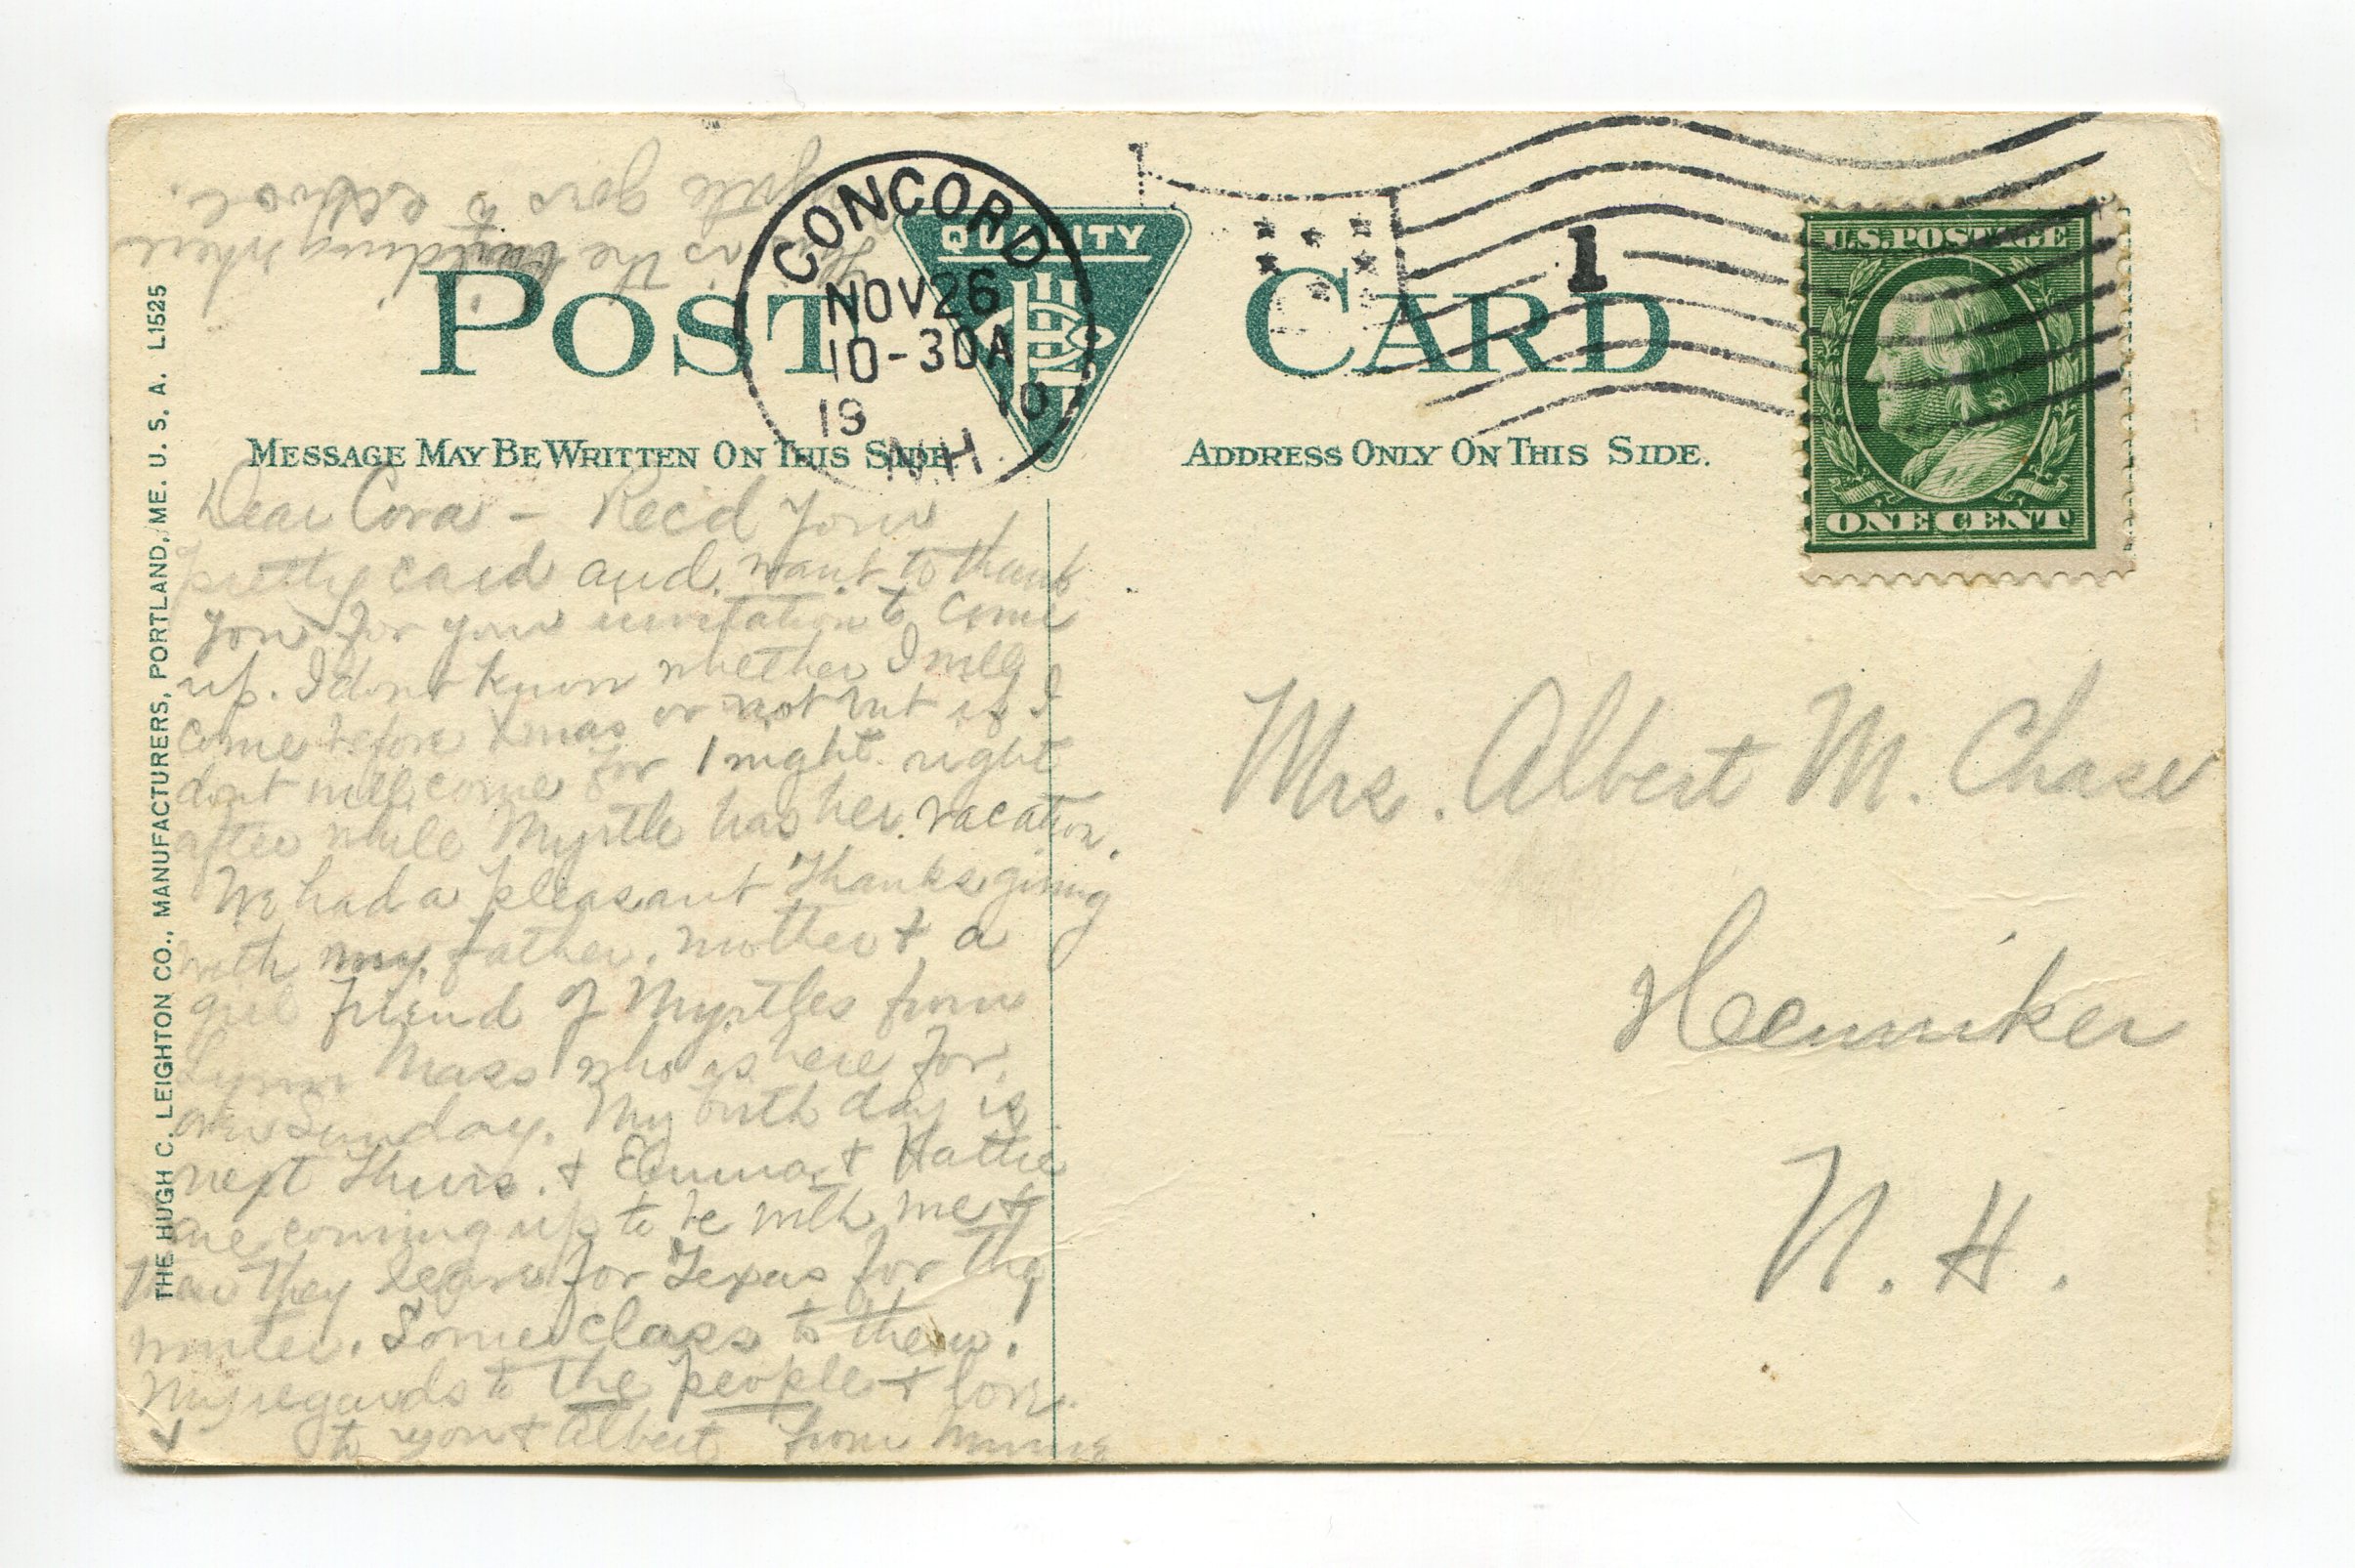 POST CARD
QUALITY
CONCORD
NOV 26
10-30A
19 10
N.H.
1
U.S. POSTAGE
ONE CENT
MESSAGE MAY BE WRITTEN ON THIS SIDE.
ADDRESS ONLY ON THIS SIDE.
THE HUGH C. LEIGHTON CO., MANUFACTURERS, PORTLAND, ME. U. S. A. L1525
This is the building where
Myrtle goes to school.
Dear Cora - Rec'd your
pretty card and want to thank
you for your invitation to come
up. I dont know whether I will
come before Xmas or not but if I
dont will come for 1 night right
after while Myrtle has her vacation.
We had a pleasant Thanksgiving
with my father, mother & a
girl friend of Myrtles from
Lynn Mass who is here for
over Sunday. My birth day is
next Thurs. & Emma & Hattie
are coming up to be with me &
then they leave for Texas for the
winter. Some class to them.
My regards to the people & love
to you & Albert from Minnie
Mrs. Albert M. Chase
Henniker
N. H.